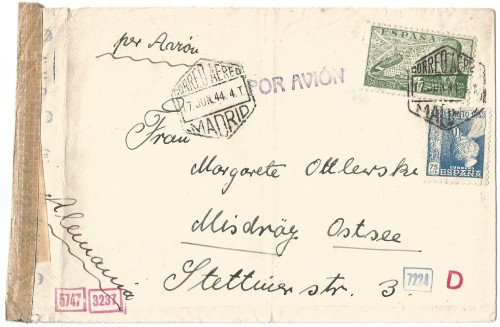 per Avión
ESPAÑA
CORREO AEREO
7. JUN. 44. 4. T
MADRID
POR AVIÓN
CORREO AEREO
MADRID
75
CORREOS
ESPAÑA
Frau
Margarete Ollerske
Misdroy Ostsee
Stettiner str. 3.
Alemania
5747 3237
7224 D